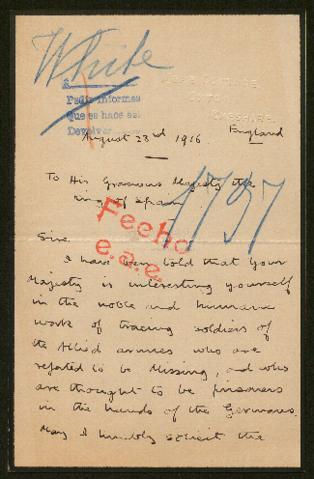 White
Pedir informes
que se hace se
Devolver
CHESHIRE.
August 23rd 1916 England
To His Gracious Majesty the
King of Spain
Fecho
e.a.e.
1797
Sire,
I have been told that Your
Majesty is interesting yourself
in the noble and humane
work of tracing soldiers of
the Allied armies who are
reported to be Missing, and who
are thought to be prisoners
in the hands of the Germans.
May I humbly solicit the